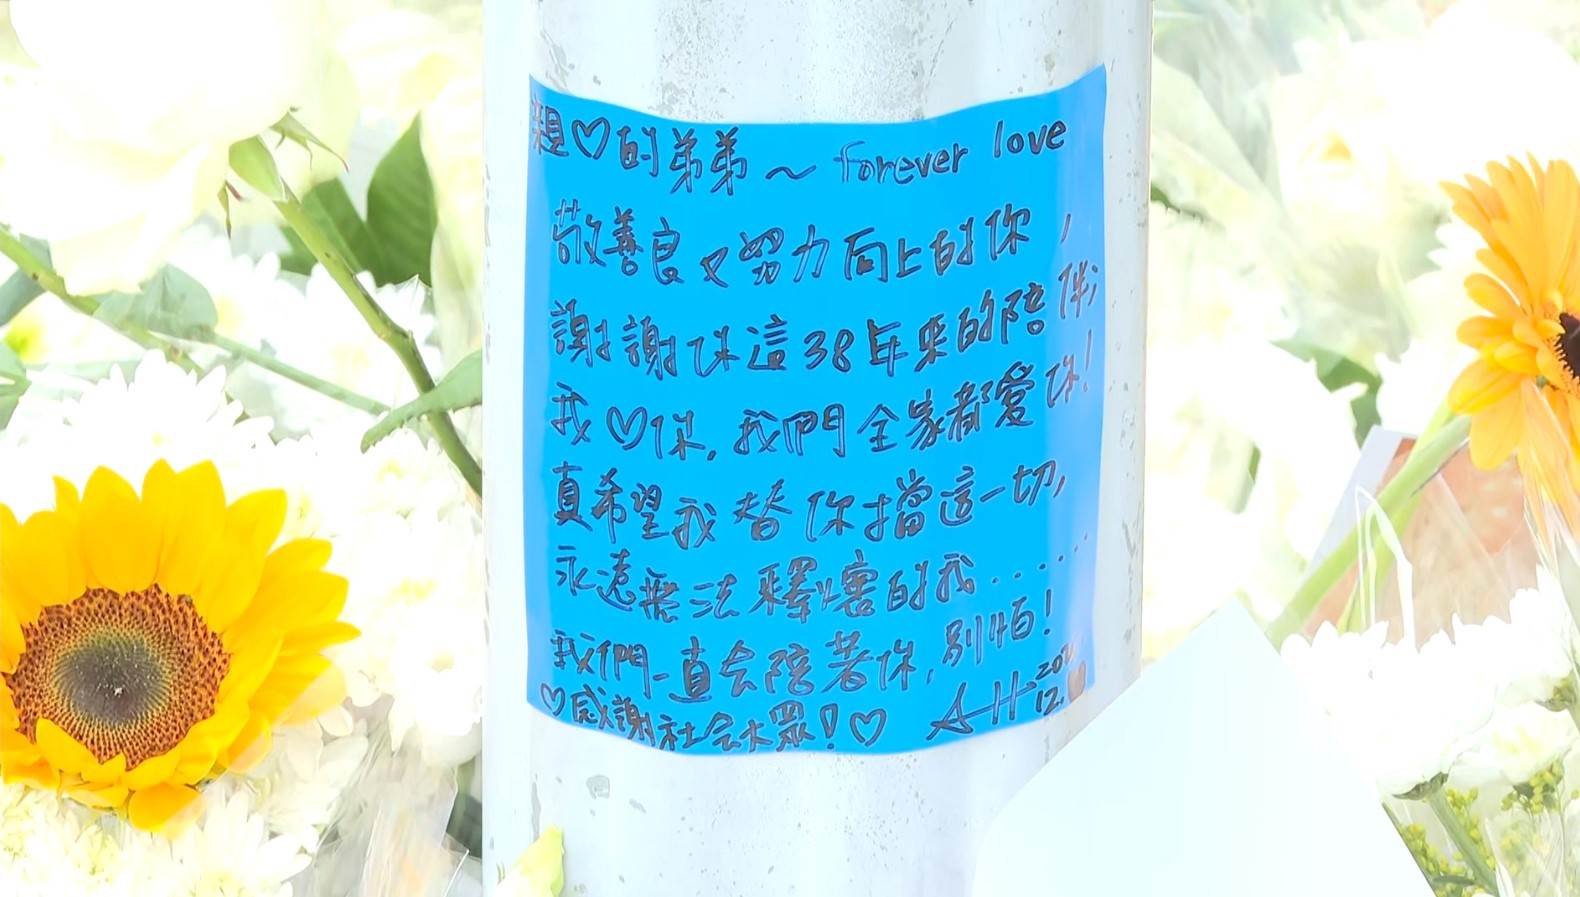 親♡的弟弟～ forever love
敬善良又努力向上的你，
謝謝你這38年來的陪伴
我♡你，我們全家都愛你！
真希望我替你擋這一切，
永遠無法釋懷的我......
我們一直會陪著你，別怕！
♡感謝社会大眾！♡